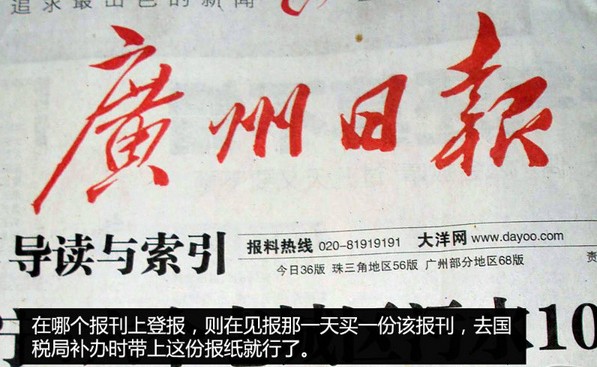 追求最出色的新闻
廣州日報
导读与索引
报料热线 020-81919191 大洋网 www.dayoo.com
今日36版 珠三角地区56版 广州部分地区68版 责
10
在哪个报刊上登报，则在见报那一天买一份该报刊，去国
税局补办时带上这份报纸就行了。